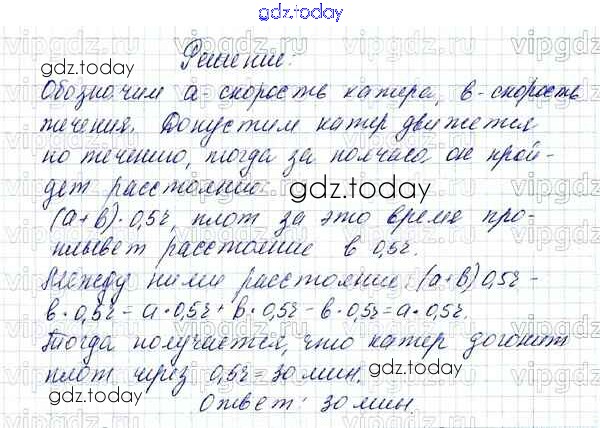 gdz.today
Решение:
gdz.today
Обозначим a - скорость катера, в - скорость
течения. Допустим катер движется
по течению, тогда за полчаса он прой-
дет расстояние
gdz.today
(a+в)·0,5ч, плот за это время про-
плывет расстояние в 0,5ч.
Между ними расстояние: (a+в)0,5ч -
в·0,5ч = a·0,5ч + в·0,5ч - в·0,5ч = a·0,5ч.
Тогда получается, что катер догонит
плот через 0,5ч = 30 мин.
Ответ: 30 мин.
gdz.today